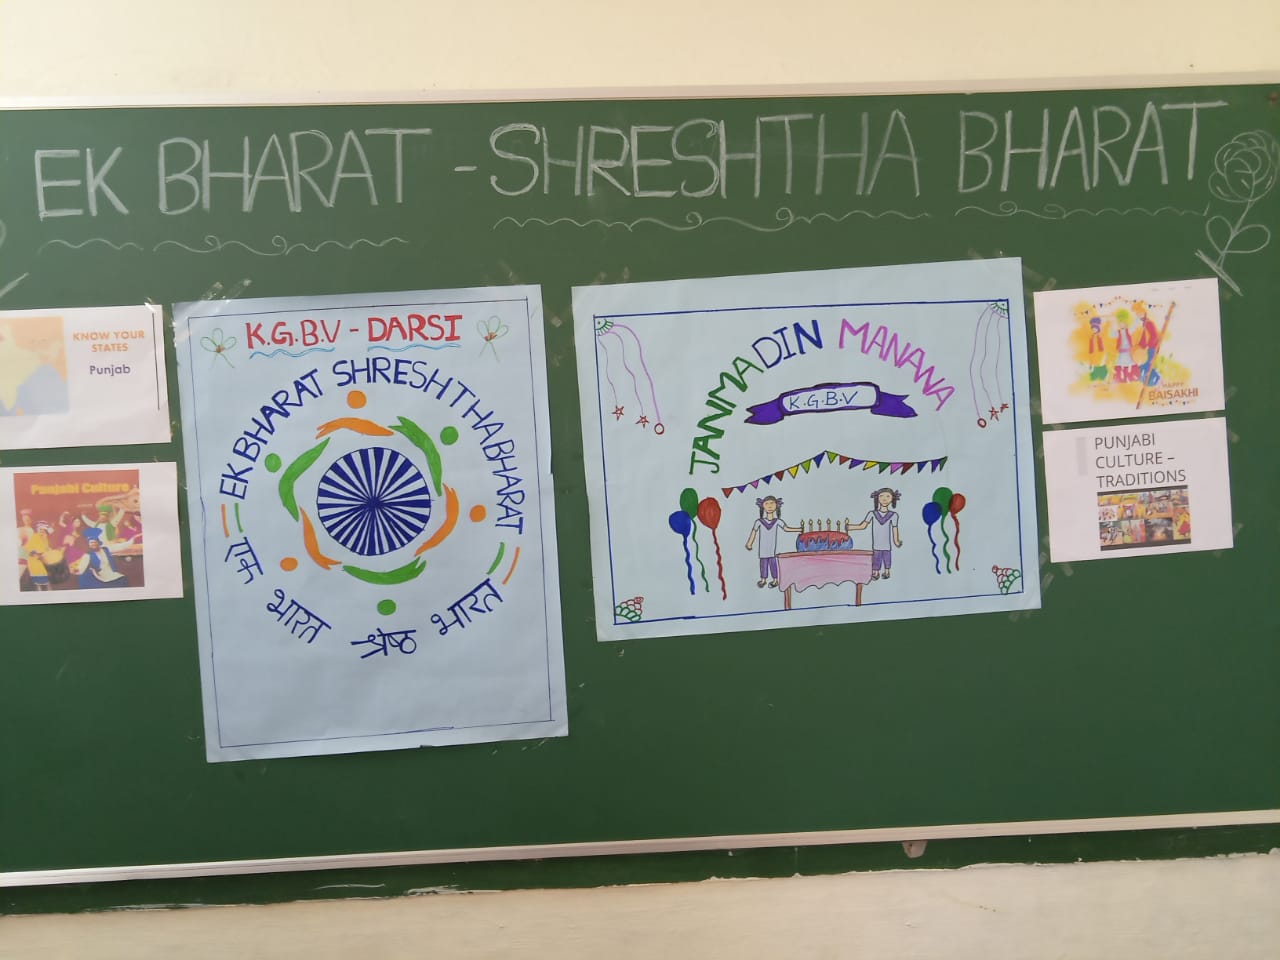 EK BHARAT - SHRESHTHA BHARAT
KNOW YOUR
STATES
Punjab
Punjabi Culture
K.G.B.V - DARSI
EK BHARAT SHRESHTHA BHARAT
भारत
श्रेष्ठ
भारत
JANMADIN MANANA
K.G.B.V
HAPPY
BAISAKHI
PUNJABI
CULTURE –
TRADITIONS